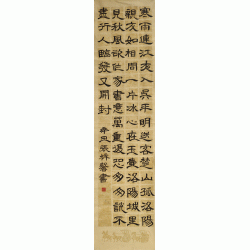 寒雨連江夜入吳平明送客楚山孤洛陽
親友如相問一片冰心在玉壺洛陽城里
見秋風欲作家書意萬重復恐匆匆說不
盡行人臨發又開封
書